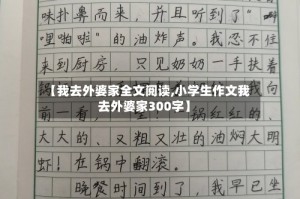 味扑鼻而来，并且听到了"
哩啦啦"的油炸声。我忍不住
来到厨房，只见奶奶一手扶着锅
【我去外婆家全文阅读,小学生作文我
去外婆家300字】
前一看，
红红的、
大大的、又粗又壮的油焖大
虾！在锅中翻滚。
晚餐时间到了，我早已坐